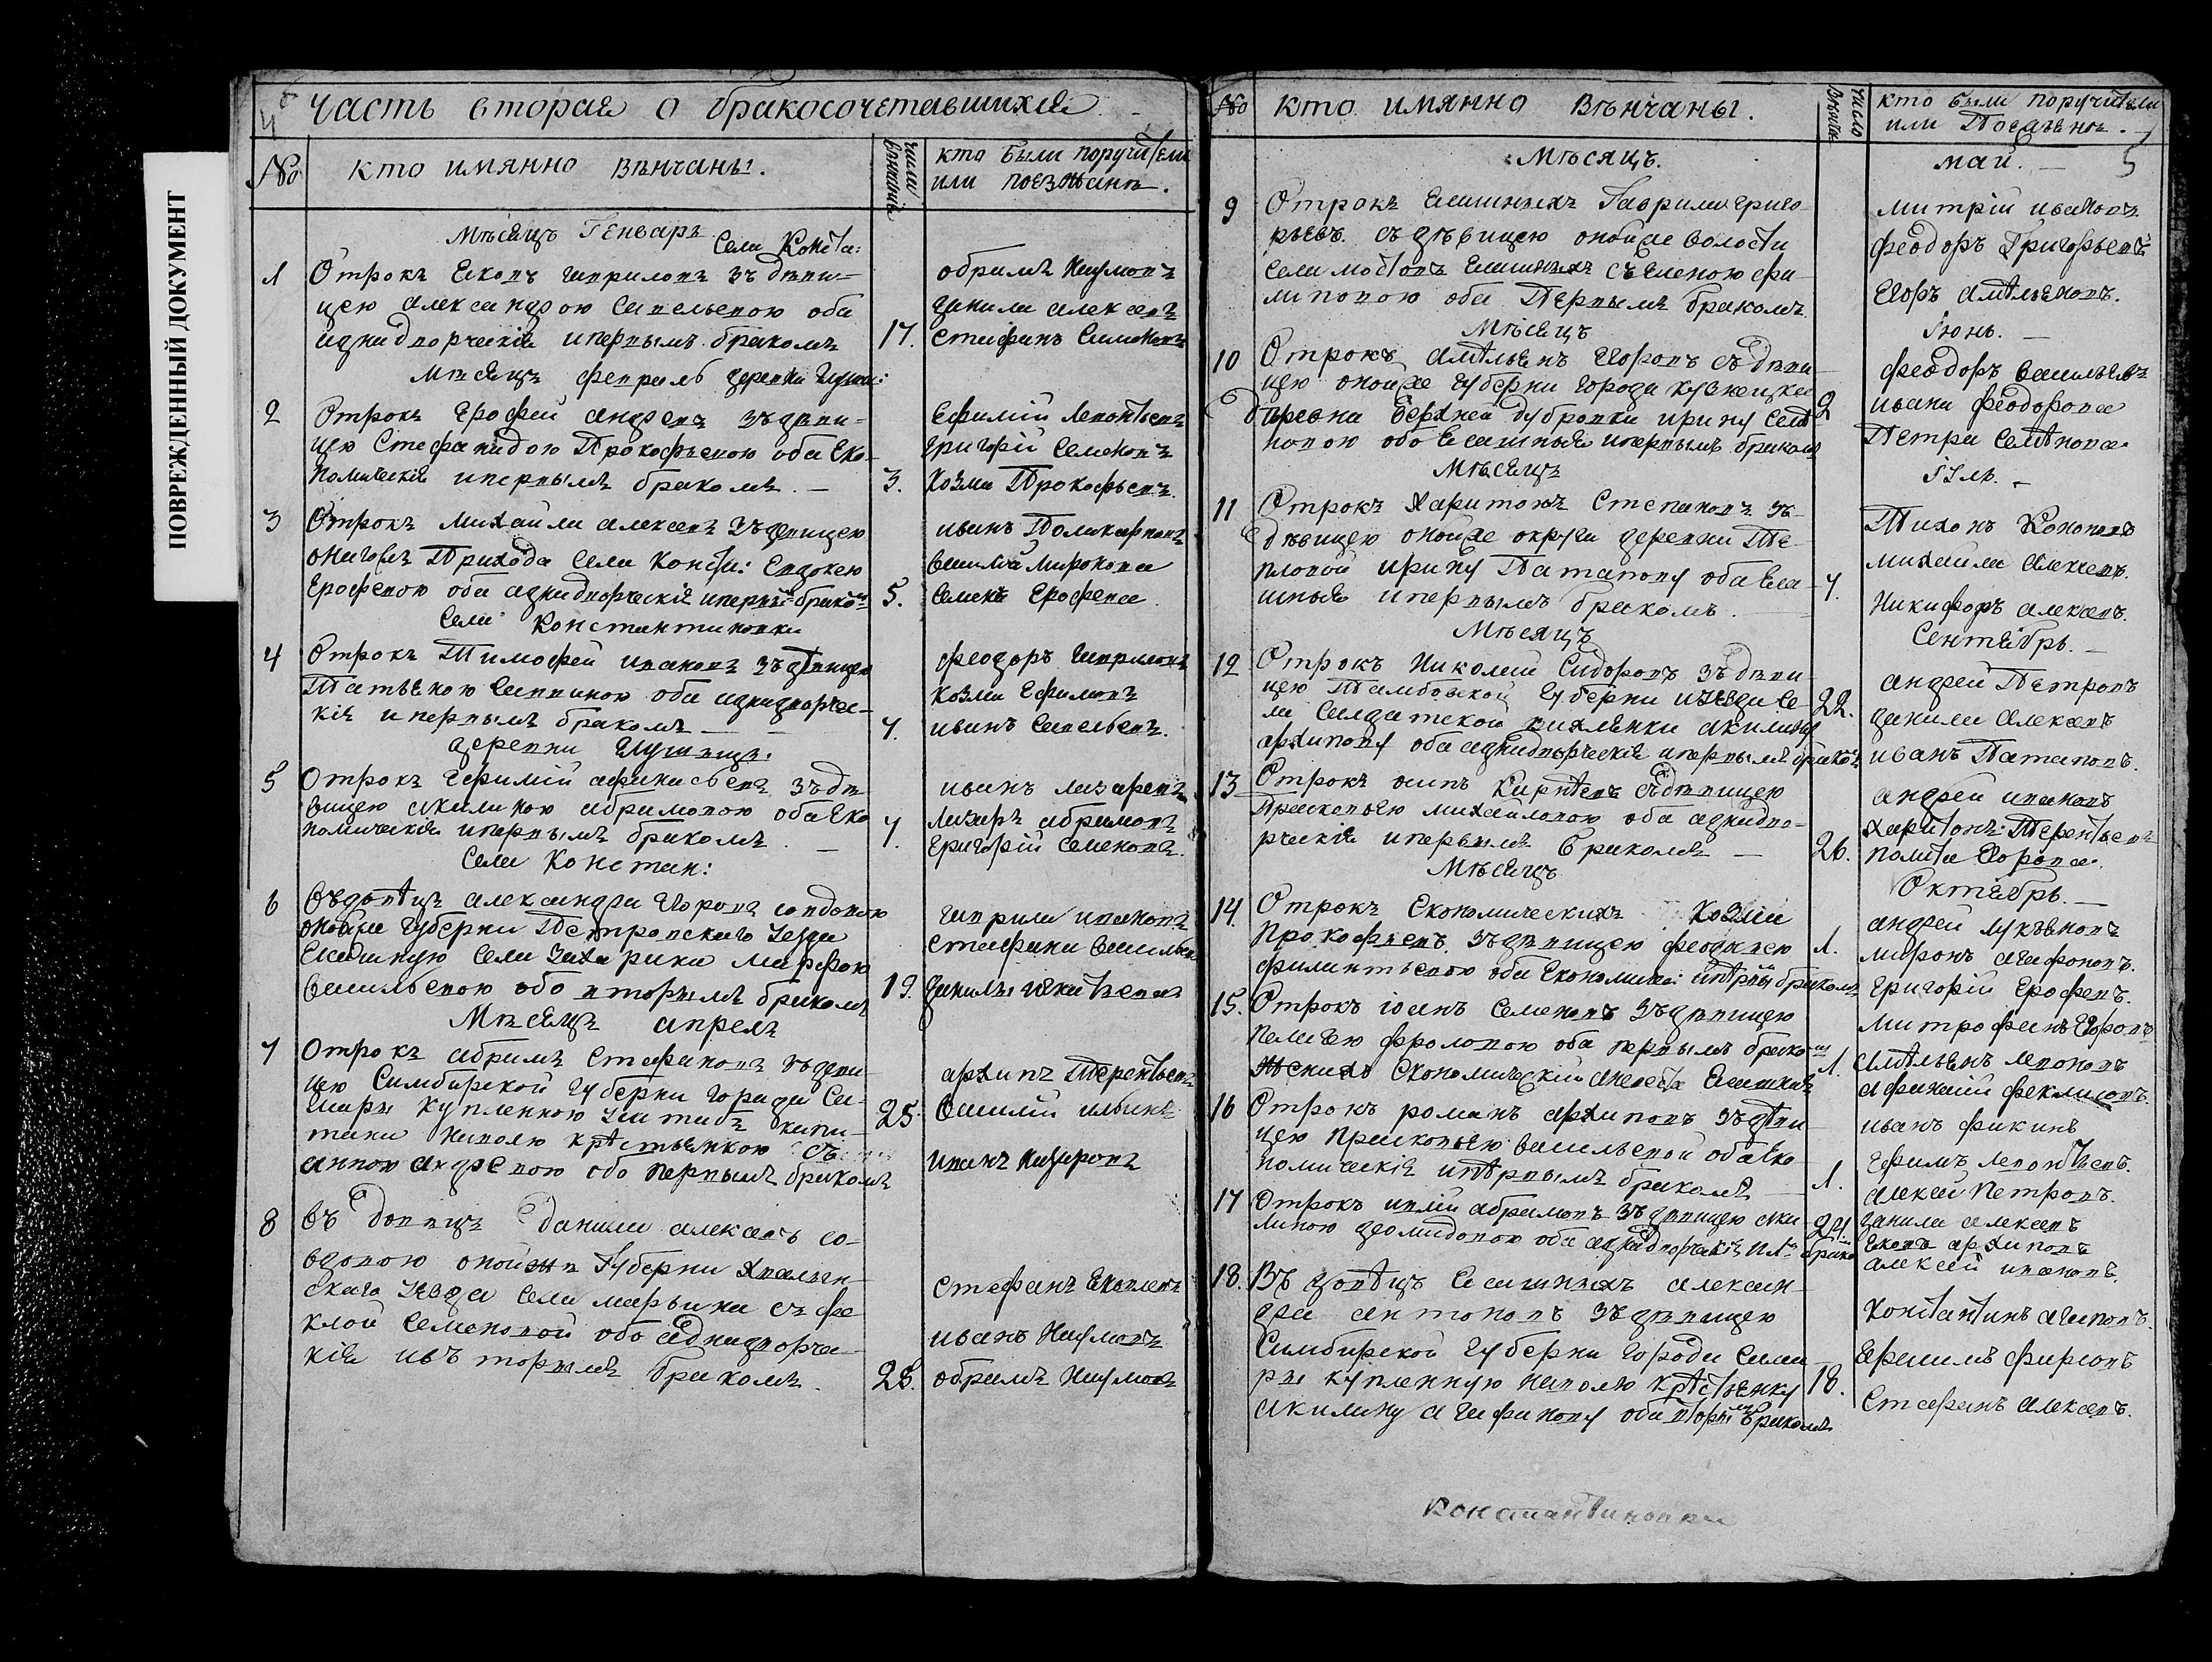 ПОВРЕЖДЕННЫЙ ДОКУМЕНТ
Часть вторая о бракосочетавшихся
№
кто имянно вѣнчаны.
число вѣнчанiя
кто были поручители
или поезжанѣ.
Мѣсяцъ Генварь
Села Конста:
1
Отрокъ Яковъ Гавриловъ зъ дѣви-
цею Александрою Савельевою оба
аднадворческiя ипервымъ бракомъ
17.
обрамъ Наумовъ
данила алексаевъ
Стефанъ Симоновъ
Мѣсяцъ февраль деревни
2
Отрокъ Ерофей андреевъ зъ дѣви-
цею Стефанидою Прокофьевою оба Еко-
номическiя ипервымъ бракомъ. —
3.
Ефимiй Левонтьевъ
григорiй Семеновъ
Козма Прокофьевъ.
3
Отрокъ Михаила алексаевъ зъ девицею
онаговъ Прихода Села Конста: Евдокею
Ерофевою оба аднадворческiя иперъвы бракомъ
5.
иванъ Поликарповъ
василiй Миронова
Семенъ Ерофеева
Села Константиновки
4
Отрокъ Тимофей ивановъ зъ дѣвицею
Татьяною Саввиною оба аднадворчес-
кiя ипервымъ бракомъ — —
7.
феодоръ Гавриловъ
Козма Ефимовъ
иванъ Савельевъ.
деревни
5
Отрокъ Ефимiй афанасьевъ зъ дѣ-
вицею акилиною абрамовою оба Еко
номическiя ипервымъ бракомъ. —
7.
иванъ лазаревъ
Лазарь абрамовъ
Григорiй Семеновъ.
Села Констан:
6
Въдовѣцъ александра Егоровъ совдовою
онойже губерни Петровскаго уезда
Ясашную Села Захарина Марфою
васильевою обо вторымъ бракомъ
19.
гаврила ивановъ
Стефана васильевъ
данилы никитьева
Мѣсяцъ апрель
7
Отрокъ абрамъ Стефановъ зъ деви-
цею Симбирской губерни города Са-
мары купленною
наволю крѣстьянкою
анною андреевою обо первымъ бракомъ
25.
архипъ Терентьевъ
Василiй ильинъ
иванъ Назаровъ
8
Въ довецъ данила алексаевъ со-
вдовою онойже губерни хвалын-
скаго уезда Села марьина съ фе-
клой Семеновой обо аднадворчес-
кiя ивъторымъ бракомъ.
28.
Стефанъ Яковлевъ
иванъ Наумовъ
обрамъ Наумовъ
№
кто имянно вѣнчаны.
число вѣнча
кто были поручители
или Поезжанѣ. —
5
Мѣсяцъ. май. —
9
Отрокъ Ясашныхъ Гаврила григо-
рьевъ. съ дѣвицею онойже волости
Села мостовъ Ясашныхъ съ Еленою фи-
липовою оба Первымъ бракомъ.
митрiй ивановъ
феодоръ Григорьевъ
Егоръ Амѣльяновъ.
Мѣсяцъ Iюнь. —
10
Отрокъ Амѣльянъ Егоровъ съ дѣви-
цею онойже губерни города кузнецка
деревни верхней дубровки ирину Семѣ
новою обо Ясашныя ипервымъ бракомъ
2
феодоръ васильевъ
ивана феодорова
Петра Семѣнова.
Мѣсяцъ Iуль. —
11
Отрокъ харитонъ Степановъ зъ-
дѣвицею онойже округи деревни Те-
пловой ирину Патапову оба Яса-
шныя ипервымъ бракомъ.
7.
Тихонъ Кононовъ
михаила Алексаевъ.
Никифоръ алексаевъ.
Мѣсяцъ Сентябрь. —
12
Отрокъ Николай Сидоровъ зъ дѣви-
цею Тамбовской губерни уезда Се-
ла Салдатской акилину
архипову оба аднадворческiя ипервымъ бракомъ
22.
андрей Петровъ
данила Алексаевъ
иванъ Патаповъ.
13
Отрокъ осипъ Карнѣевъ съ дѣвицею
Прасковьею михайловою оба аднадво-
рческiя ипервымъ бракомъ —
26.
андрей ивановъ
харитонъ: Терентьевъ
Егорова.
Мѣсяцъ Октябрь. —
14.
Отрокъ Економическихъ Козма
Прокофьевъ. зъ дѣвицею феодосею
оба Економичес: ипѣрвы бракомъ
1.
андрей лукьяновъ
миронъ агафоновъ.
григорiй Ерофеевъ.
15.
Отрокъ iоанъ Семеновъ зъ дѣвицею
Пелагею фроловою оба первымъ бракомъ
женихъ Економическiй аневеста Ясашная
1.
митрофанъ Егоровъ
Амѣльянъ левоновъ
афанасiй феклисовъ.
16
Отрокъ романъ архиповъ зъ дѣви
цею Прасковьею васильевой оба Еко
номическiя ипѣрвымъ бракомъ
1.
иванъ фикинъ
Ефимъ левонтьевъ.
алексей Петровъ.
17
Отрокъ абрамовъ зъ дѣвицею аки-
линою деомидовою оба аднадворческiя бракомъ
24
данила алексаевъ
Яковъ архиповъ
алексей ивановъ.
18.
Въ довѣцъ Ясашныхъ алексан-
дра антоновъ зъ дѣвицею
Симбирской губерни города Сама-
ры купленную наволю крѣстьянку
акилину агафонову оба вторымъ бракомъ
18.
Константинъ агаповъ.
абрамъ фирсовъ
Стефанъ алексаевъ.
Константиновки